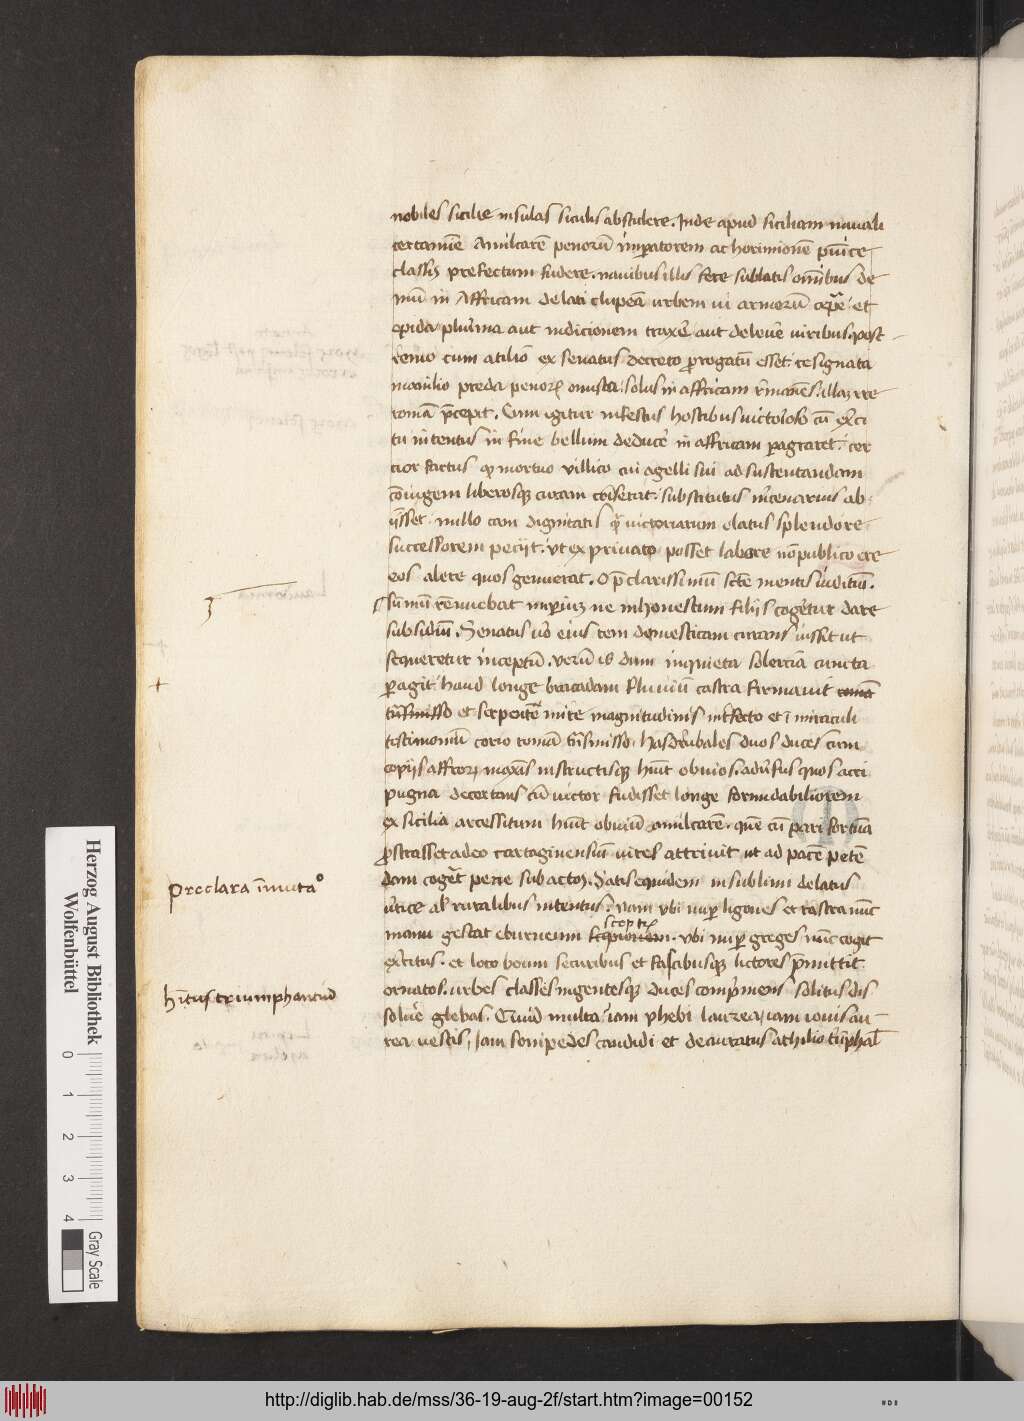 nobiles sicilie insulas siculis abstulere. Inde apud siciliam nauali
certamīe Amilcarē penorū imperatorem ac horimionē punice
classis prefectum fudere. nauibus illis fere sublatis omībus de
mū in Affricam delati clupeā urbem ui armorū cepere et
opida plurima aut indicionem traxer aut deleuēre uiribus. post
remo cum atilio ex senatus decreto prorogatū esset. resignata
manilio preda penorum onusta. solus in affricam
romā precepit. Cum igitur infestus hostibus uictorioso cū exerci
tu intentus in fine bellum deducere in affricam peragraret. cer
cior factus quod mortuo villico cui agelli sui ad sustentandam
cōiugem liberosque curam cōmiserat. substitutus mercenarius ab
iisset. nullo tam dignitatis quam uictoriarum elatus splendore
successorem peciit. ut ex priuato posset labore nō publico ere
eos alere quos genuerat. O preclarissimū sctē mentis iuditiū.
sūmū rēnuebat imperium ne inhonestum filiis cogeretur dare
subsidiū. Senatus uero eius rem domesticam curans iussit ut
sequeretur inceptū. verū is dum inquieta solercia cuncta
peragit haud longe bracadam fluuiū castra firmauit
et serpente mire magnitudinis interfecto et ī miraculi
testimoniū corio romā transmisso. hasdrubales duos duces cum
copijs affrorum maximis instructisque habuit obuios. aduersus quos acri
pugna decertans cū uictor fudisset longe formidabiliorem
ex sicilia arcessitum habuit obuiū amilcarē. quē cū pari fortūa
prostrasset adeo cartaginensiū uires attriuit ut ad pacē petē
dam cogeret pene subactos. Satis equidem in sublimi delatus
uertice ab ruralibus intentus. nam ubi nuper ligones et rastra nunc
manu gestat eburneum sceptrum. ubi nuper greges nūc cogit
exercitus. et loco boum securibus et fascibusque lictores premittit
ornatos. urbes classes ingentesque duces comprimens solitus dis
soluere glebas. Quid multa iam phebi laurea, iam iouis au
rea uestis, Iam sonipedes candidi et decuratus athilio triumphal
Preclara īmutatio
habitus triumphantium
Herzog August Bibliothek
Wolfenbüttel
0 1 2 3 4
Gray Scale
http://diglib.hab.de/mss/36-19-aug-2f/start.htm?image=00152